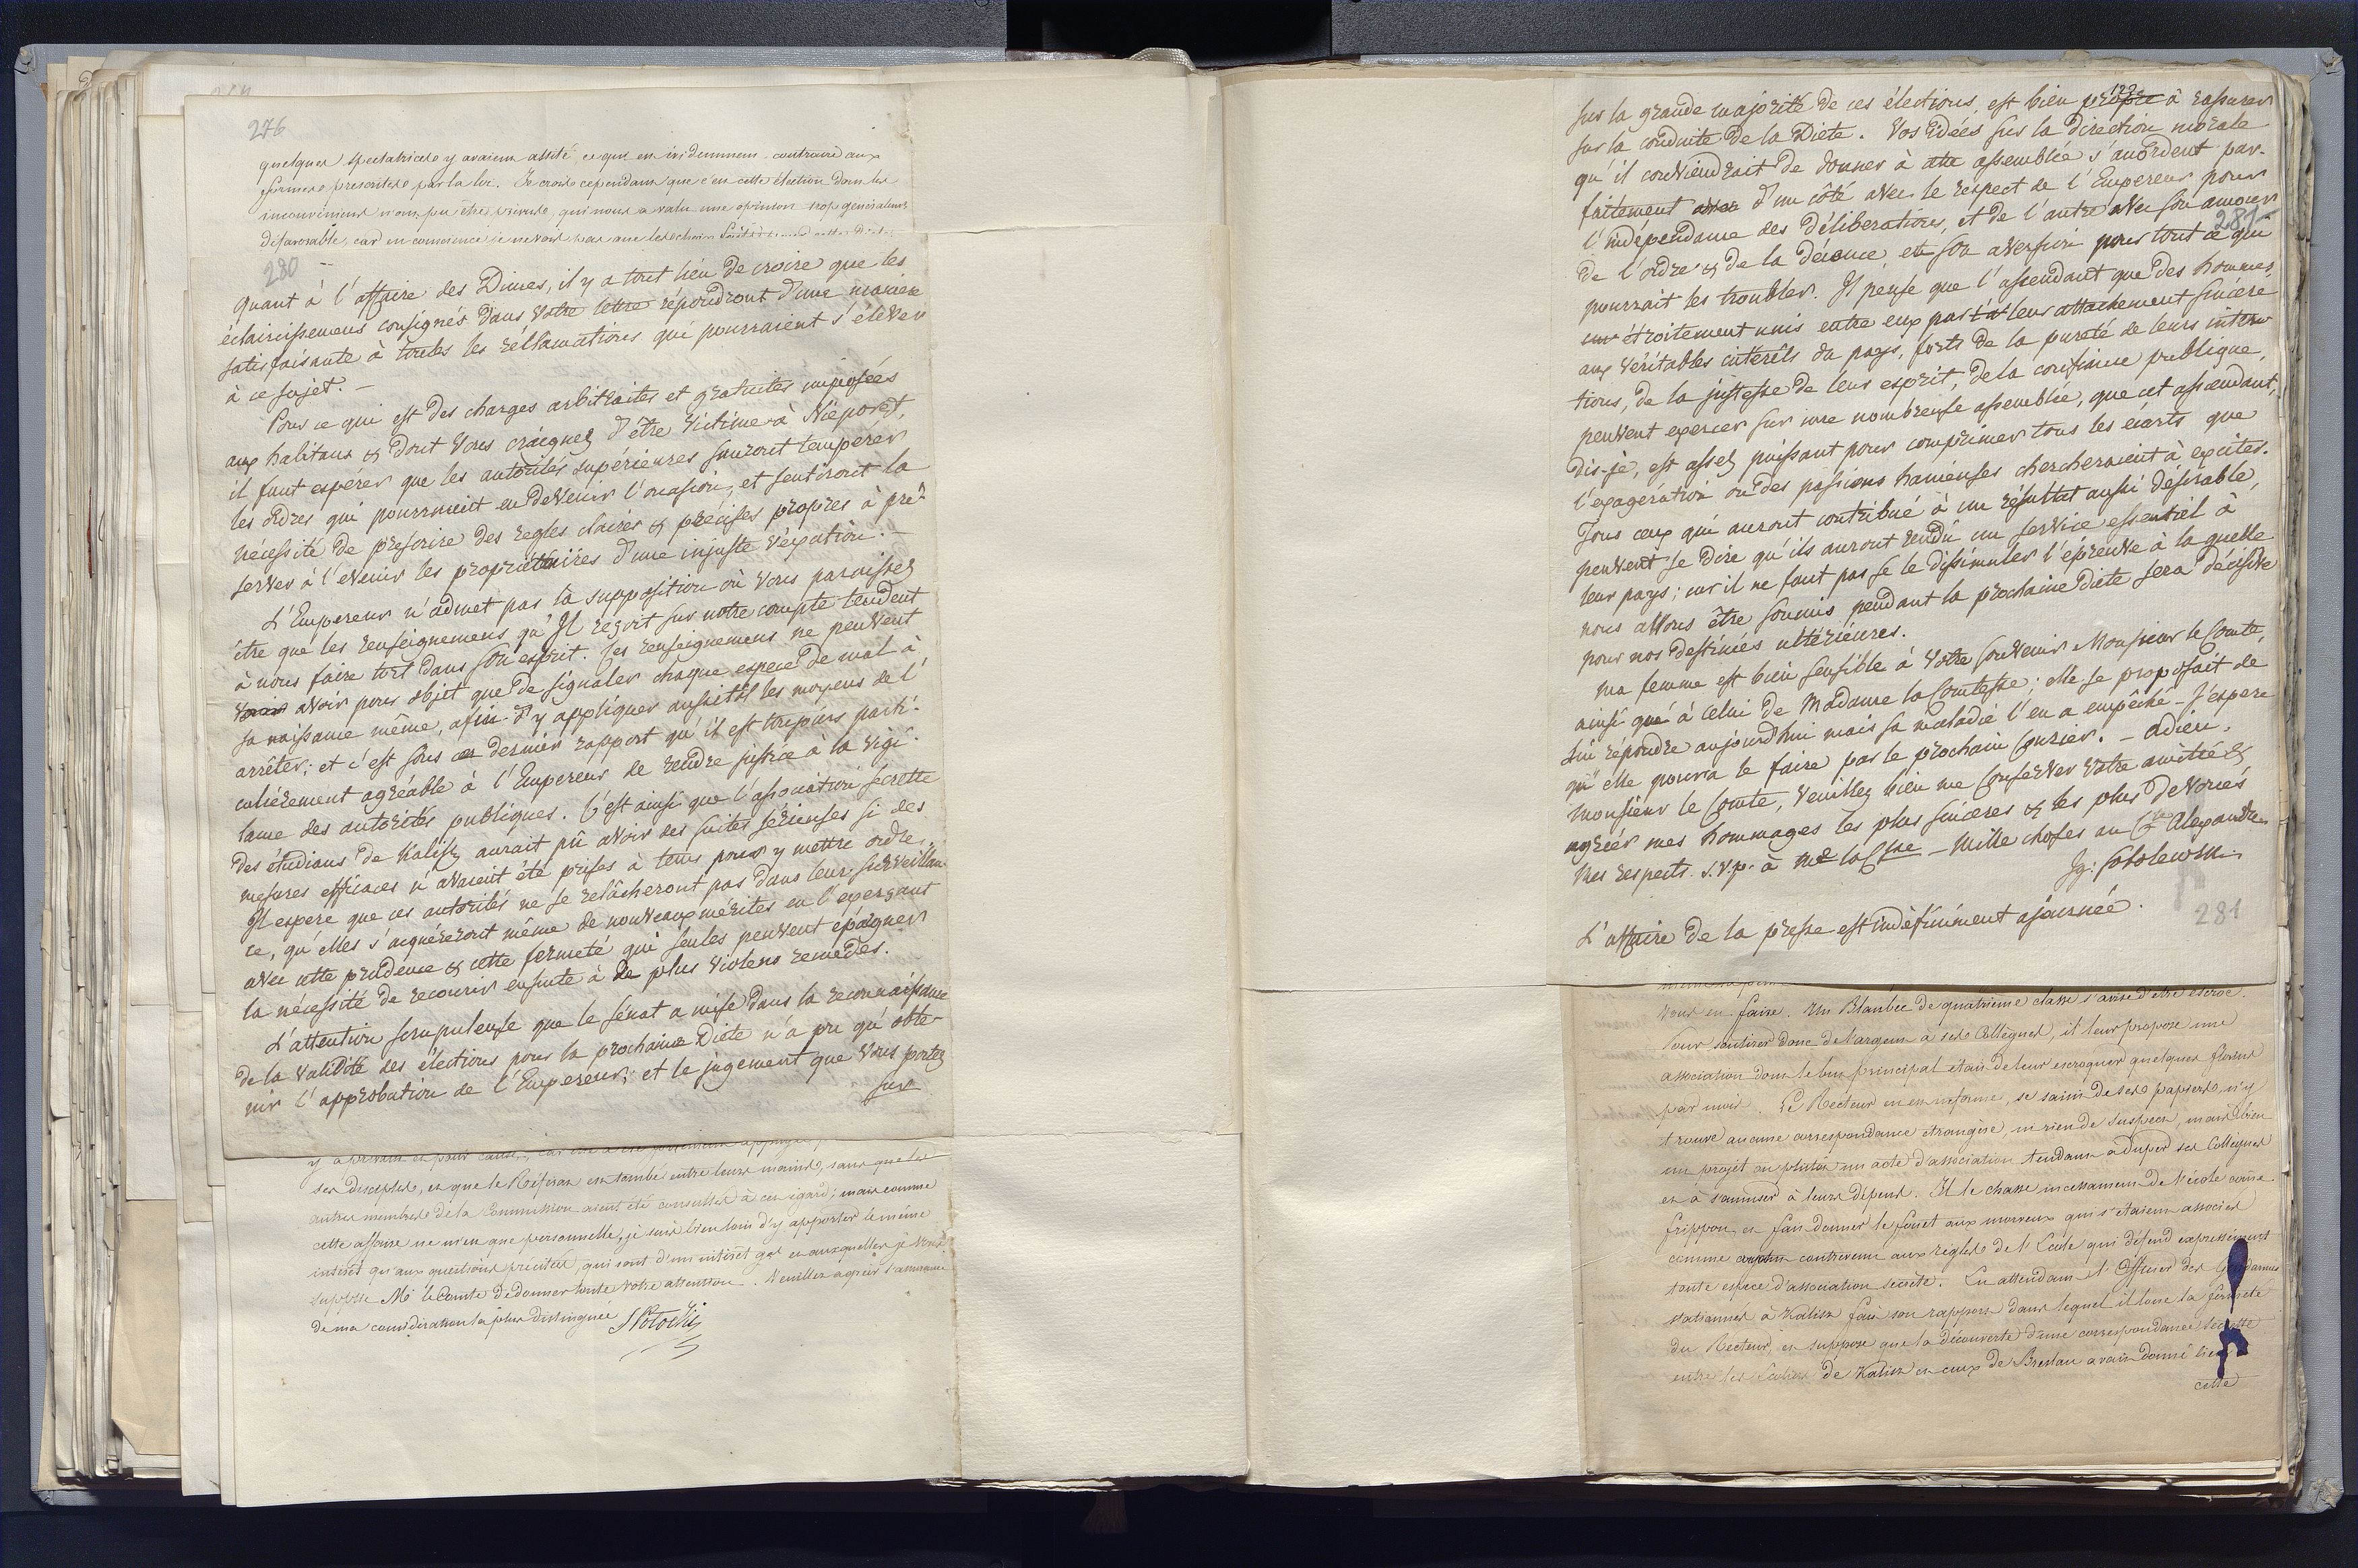 276
quelques spectatrices y avaient assisté, ce qui est évidemment contraire aux
formes prescrites par la loi. Je crois cependant que c'est cette élection dont les
inconvéniens n'ont pu être prévus, qui nous a valu une opinion trop généralement
défavorable, car en conscience je ne vois pas que les
280
quant à l'affaire des Dimes, il y a tout lieu de croire que les
éclaircissemens consignés dans votre lettre répondront d'une maniere
satisfaisante à toutes les réclamations qui pourraient s'élever
à ce sujet. —
Pour ce qui est des charges arbitraires et gratuites imposées
aux habitans & dont vous craignez d'être victime à Nieporet,
il faut espérer que les autorités supérieures sauront tempérer
les ordres qui pourraient en devenir l'occasion, et sentiront la
nécessité de prescrire des regles claires & précises propres à pré-
server à l'avenir les propriétaires d'une injuste vexation. —
L'Empereur n'admet pas la supposition où vous paraissez
être que les renseignemens qu'Il reçoit sur notre compte tendent
à nous faire tort dans son esprit. Ces renseignemens ne peuvent
avoir pour objet que de signaler chaque espece de mal à
sa naissance même, afin d'y appliquer aussitôt les moyens de l'
arrêter; et c'est sous ce dernier rapport qu'il est toujours parti-
culièrement agréable à l'Empereur de rendre justice à la vigi-
lance des autorités publiques. C'est ainsi que l'association secrette
des étudians de Kalisz aurait pû avoir des suites sérieuses si des
mesures efficaces n'avaient été prises à tems pour y mettre ordre.
Il espere que ces autorités ne se relâcheront pas dans leur surveillan-
ce, qu'elles s'acquéreront même de nouveaux mérites en l'exerçant
avec cette prudence & cette fermeté qui seules peuvent épargner
la nécessité de recourir ensuite à de plus violens remèdes.
L'attention scrupuleuse que le Sénat a mise dans la reconnaissance
de la validité des élections pour la prochaine Diete n'a pu qu'obte-
nir l'approbation de l'Empereur; et le jugement que vous portez
sur
ses disciples, et que le Référat est tombé entre leurs mains, sans que les
autres membres de la Commission aient été consultés à cet égard; mais comme
cette affaire ne m'est que personnelle, je suis bien loin d'y apporter le même
intérêt qu'aux questions précitées, qui sont d'un intérêt gal et auxquelles je vous
supplie Mr le Comte de donner toute votre attention. Veuillez agréer l'assurance
de ma considération la plus distinguée
SPotocki
122
sur la grande majorité de ces élections, est bien propre à rassurer
sur la conduite de la Diete. Vos idées sur la direction morale
qu'il conviendrait de donner à cette assemblée s'accordent par-
faitement d'un côté avec le respect de l'Empereur pour
l'indépendance des délibérations, et de l'autre avec son amour
281
de l'ordre & de la décence et son aversion pour tout ce qui
pourrait les troubler. Il pense que l'ascendant que des hommes,
étroitement unis entre eux par leur attachement sincère
aux véritables intérêts du pays, forts de la pureté de leurs inten-
tions, de la justesse de leur esprit, de la confiance publique,
peuvent exercer sur une nombreuse assemblée, que cet ascendant,
dis-je, est assez puissant pour comprimer tous les écarts que
l'exagération ou des passions haineuses chercheraient à exciter.
Tous ceux qui auront contribué à un résultat aussi désirable,
peuvent se dire qu'ils auront rendu un service essentiel à
leur pays; car il ne faut pas se le dissimuler l'épreuve à laquelle
nous allons être soumis pendant la prochaine Diete sera décisive
pour nos destinées ultérieures.
Ma femme est bien sensible à votre souvenir Monsieur le Comte,
ainsi qu'à celui de Madame la Comtesse; elle se proposait de
lui répondre aujourd'hui mais sa maladie l'en a empêché. J'espere
qu'elle pourra le faire par le prochain Courier. — Adieu,
Monsieur le Comte, veuillez bien me conserver votre amitié &
agréer mes hommages les plus sincères & les plus dévoués
Mes respects. s.v.p. à Me la Csse — Mille choses au Cte Alexandre
Ig: Sobolewski
281
L'affaire de la presse est indéfiniment ajournée.
vous en faire. Un Blanbec de quatrième classe s'avise d'être escroc.
Pour soutirer donc de l'argent à ses Collègues, il leur propose une
association dont le but principal était de leur escroquer quelques florins
par mois. Le Recteur en est informé, se saisit de ses papiers, n'y
trouve aucune correspondance étrangère, ni rien de suspect, mais bien
un projet ou plutôt un acte d'association tendant à duper ses Collègues
et à s'amuser à leurs dépens. Il le chasse incessament de l'école come
frippon et fait donner le fouet aux morveux qui s'étaient associés
comme contrevenu aux règles de l'Ecole qui défend expressément
toute espèce d'association secrète. En attendant l'Officier des Gendarmes
stationnés à Kalisz fait son rapport dans lequel il loue la fermeté
du Recteur, et suppose que la découverte d'une correspondance secrette
entre les Ecoliers de Kalisz et ceux de Breslau avait donné lieu
cette